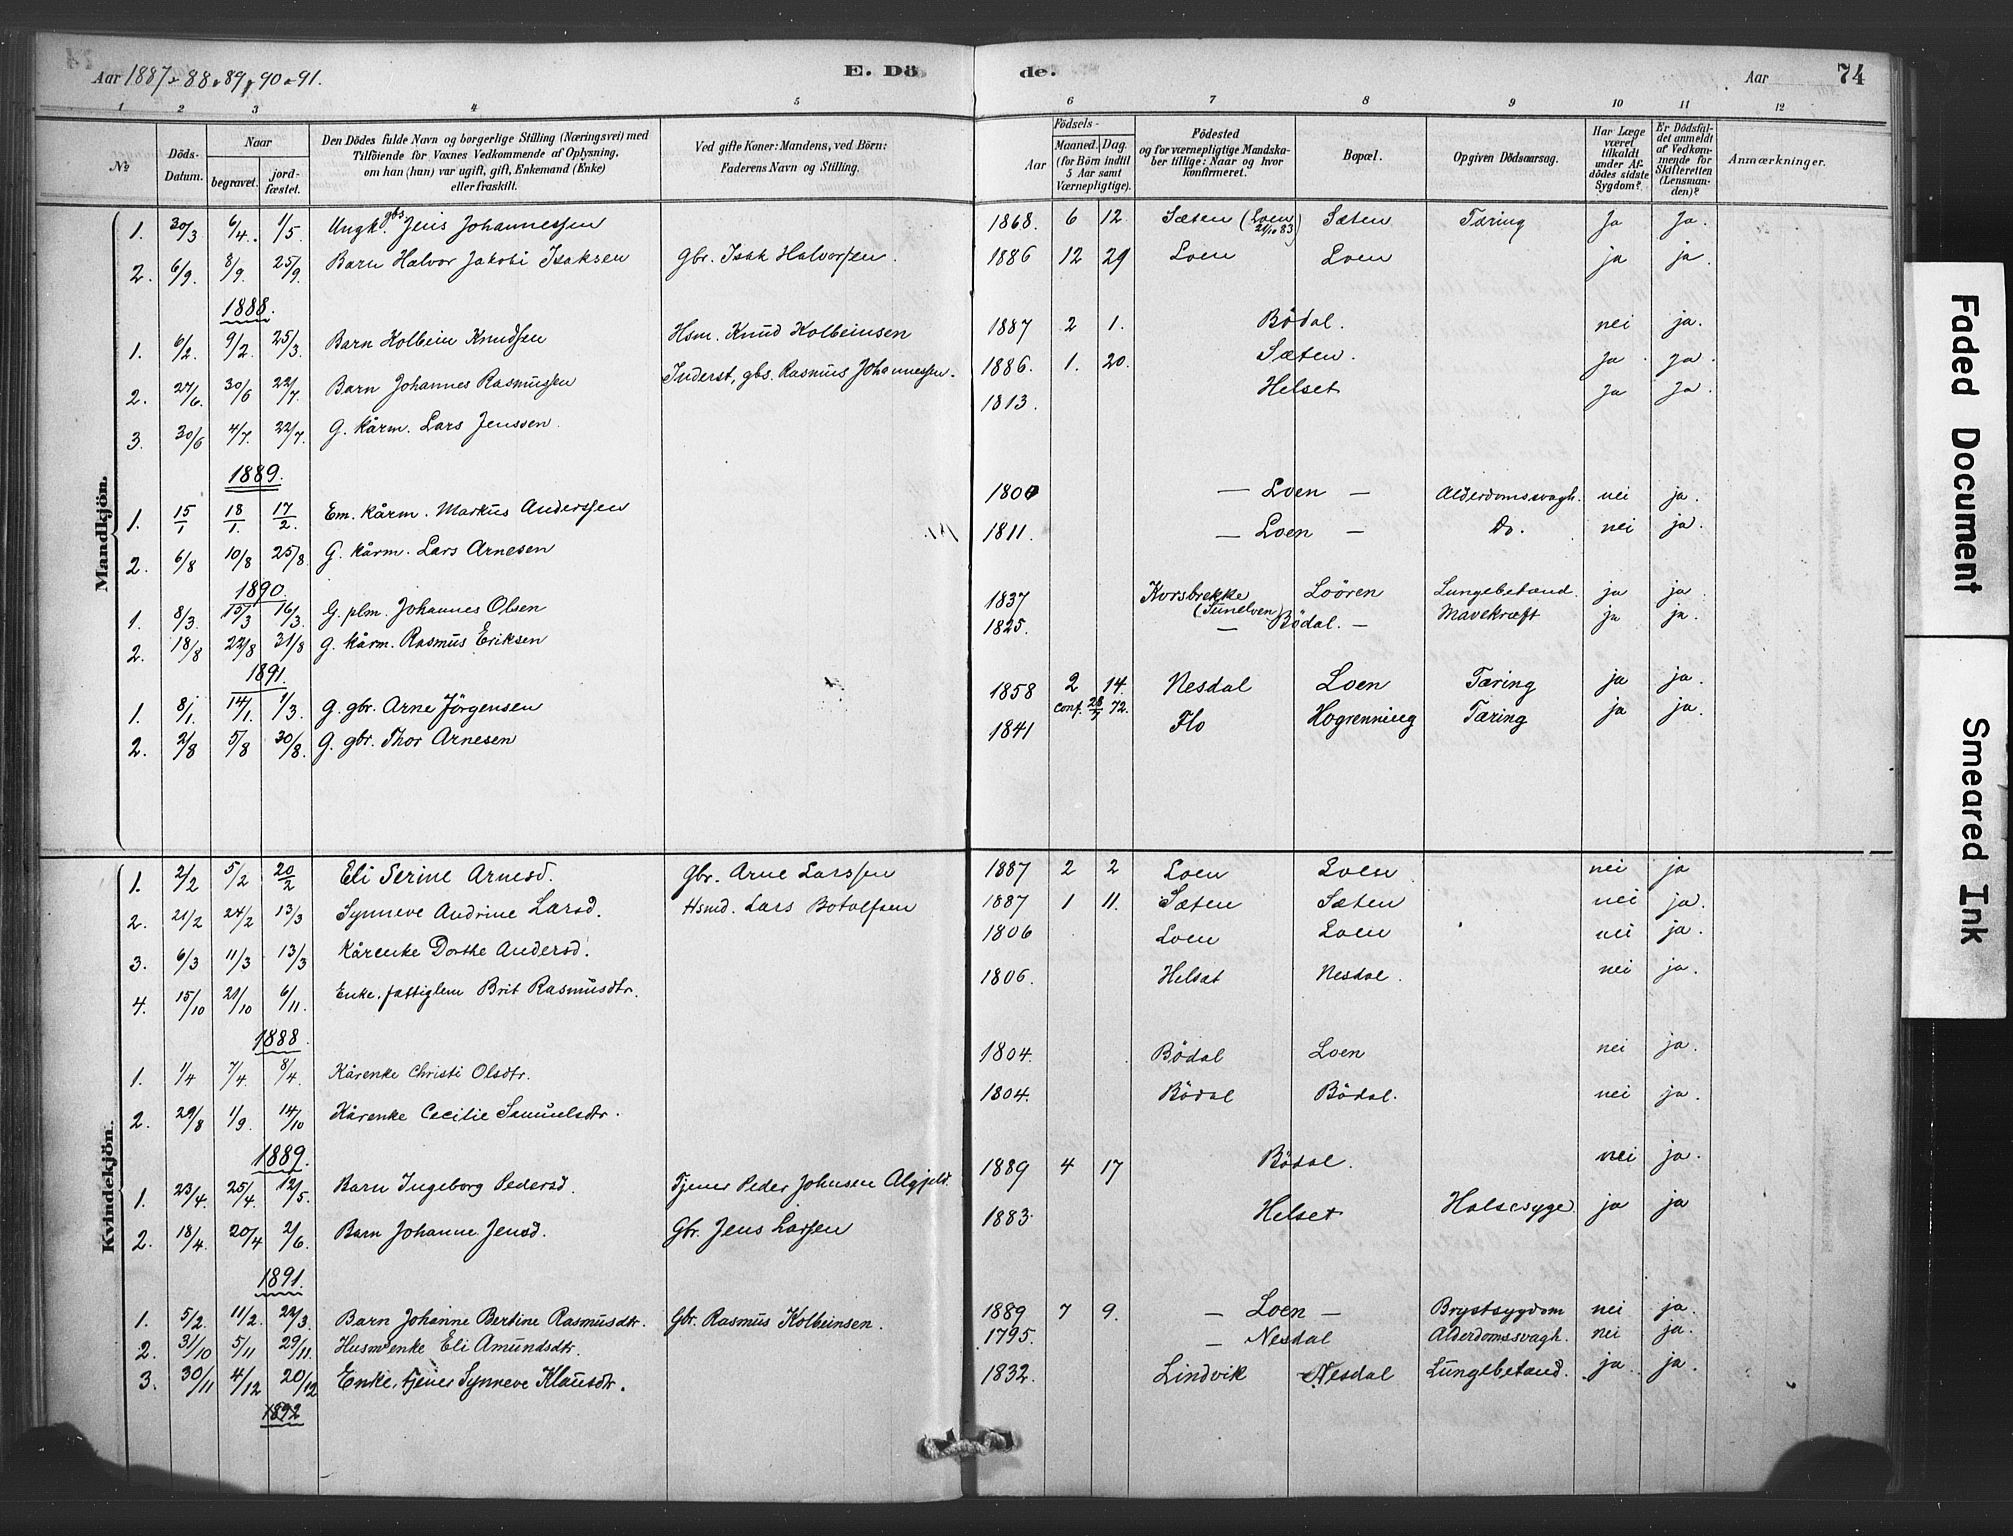 Aar 1887 - 88 - 89, 90 - 91.
E. Dö
de.
Aar
74
1 2 3 4 5 6 7 8 9 10 11 12
No
Döds-Datum.
Naar
begravet.
jord-fæstet.
Den Dödes fulde Navn og borgerlige Stilling (Næringsvei) med
Tilföiende for Voxnes Vedkommende af Oplysning,
om han (hun) var ugift, gift, Enkemand (Enke)
eller fraskilt.
Ved gifte Koner: Mandens, ved Börn:
Faderens Navn og Stilling.
Födsels-
Aar
Maaned. Dag.
(for Börn indtil
5 Aar samt
Værnepligtige).
Födested
og for værnepligtige Mandska-
ber tillige: Naar og hvor
konfirmeret.
Bopæl.
Opgiven Dödsaarsag.
Har Læge
været
tilkaldt
under Af-
dödes sidste
Sygdom?
Er Dödsfal-
det anmeldt
af Vedkom-
mende for
Skifteretten
(Lensman-
den)?
Anmærkninger.
Mandkjön.
1. 30/3 6/4 1/5 Ungk. gbs. Jens Johannessen 1868. 6 12. Sæten (Loen 21/10 83) Sæten Tæring Ja Ja.
2. 6/9 8/9 25/9 Barn Halvor Jakobi Isaksen Gbr. Isak Halvorsen. 1886 12 29 Loen Loen ja ja.
1888.
1. 6/2 9/2 25/3 Barn Kolbein Knudsen Hsm. Knud Kolbeinsen 1887 2 1. Bödal. nei ja.
2. 27/6 30/6 22/7 Barn Johannes Rasmussen Inderst, gbs. Rasmus Johannessen. 1886. 1. 20. Sæten. Ja Ja.
3. 30/6 4/7 22/7 G. kårm. Lars Jenssen. 1813. Helset Ja Ja.
1889.
1. 15/1 18/1 17/2 Em. kårm. Markus Anderssen 1800 — Loen — Alderdomssvagh. nei ja.
2. 6/8 10/8 25/8 G. kårm. Lars Arnesen 1811. — Loen — Do. nei ja.
1890.
1. 8/3 15/3 16/3 G. plm. Johannes Olsen 1837 Korsbrekke (Sunelven) Loören Lungebetænd. ja ja
2. 18/8 22/8 31/8 G. kårm. Rasmus Eriksen 1825. — Bödal. — Mavekræft ja ja.
1891.
1. 8/1 14/1 1/3 G. gbr. Arne Jörgensen 1858 2 14. conf. 28/7 72. Nesdal Loen Tæring ja ja.
2. 2/8 5/8 30/8 G. gbr. Thor Arnesen 1841 Flo Hogrenning Tæring ja ja.
Kvindekjön.
1. 2/2 5/2 20/2 Eli Serine Arnesd. Gbr. Arne Larssen 1887 2 2 Loen Loen nei ja
2. 21/2 24/2 13/3 Synneve Andrine Larsd. Hsmd. Lars Botolfsen 1887 1 11. Sæten Sæten nei ja.
3. 6/3 11/3 13/3 Kårenke Dorthe Andersd. 1806 Loen Loen nei ja.
4. 15/10 21/10 6/11 Enke. fattiglem Brit Rasmusdtr. 1806. Helset Nesdal. nei ja.
1888.
1. 1/4 7/4 8/4 Kårenke Christi Olsdtr. 1804. Bödal Loen nei ja.
2. 29/8 1/9 14/10 Kårenke Cecilie Samuelsdtr. 1804. Bödal Bödal. nei ja.
1889.
1. 23/4 25/4 12/5 Barn Ingeborg Pedersd. Tjener Peder Johnsen 1889 4 17 Bödal. nei ja.
2. 18/4 20/4 2/6 Barn Johanne Jensd. Gbr. Jens Larsen 1883. Helset Halsesyge ja ja
1891.
1. 5/2 11/2 22/3 Barn Johanne Bertine Rasmusdtr. Gbr. Rasmus Kolbeinsen. 1889 7 9. — Loen — Brystsygdom nei ja.
2. 31/10 5/11 29/11. Husmenke Eli Amundsdtr. 1795. — Nesdal Alderdomssvagh. nei ja.
3. 30/11 4/12 20/12 Enke, tjener Synneve Klausdtr. 1832. Lindvik Nesdal Lungebetænd. ja ja.
1892
Faded Document
Smeared Ink